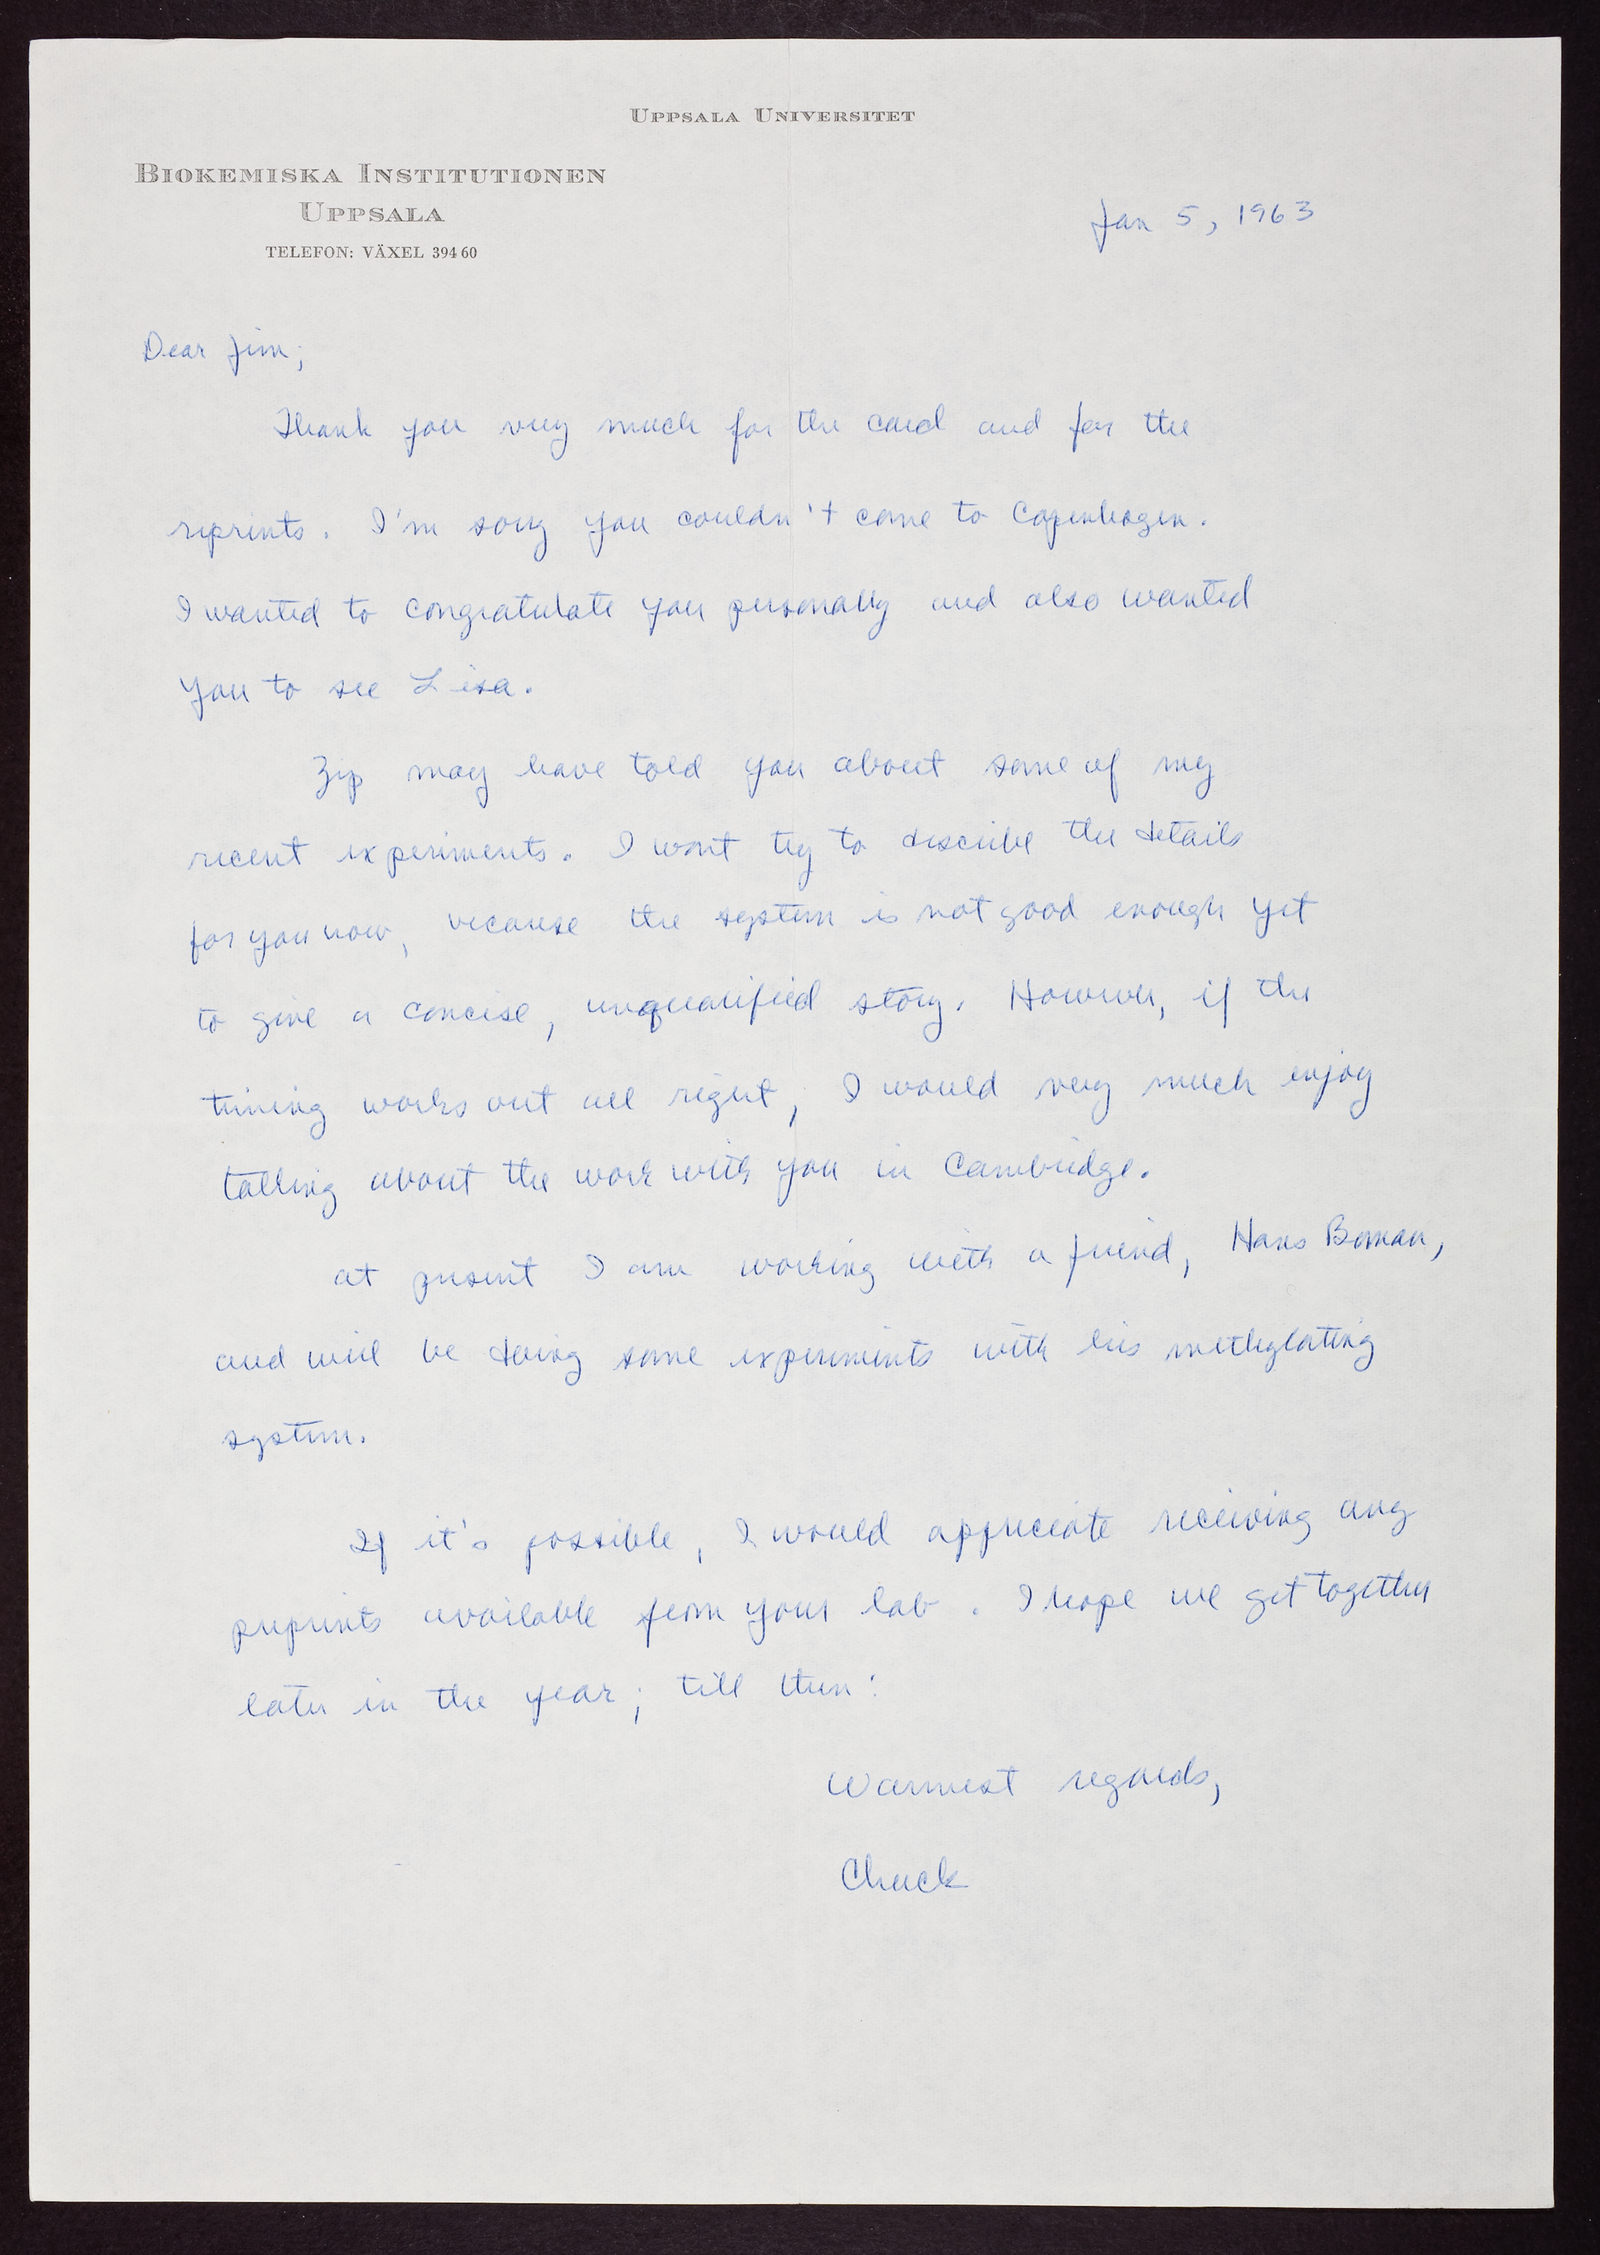 UPPSALA UNIVERSITET
BIOKEMISKA INSTITUTIONEN
UPPSALA
TELEFON: VÄXEL 394 60
Jan 5, 1963
Dear Jim;
Thank you very much for the card and for the
reprints. I'm sorry you couldn't come to Copenhagen.
I wanted to congratulate you personally and also wanted
you to see Lisa.
Zip may have told you about some of my
recent experiments. I wont try to describe the details
for you now, because the system is not good enough yet
to give a concise, unqualified story. However, if the
timing works out all right, I would very much enjoy
talking about the work with you in Cambridge.
at present I am working with a friend, Hans Boman,
and will be doing some experiments with his methylating
system.
If it's possible, I would appreciate receiving any
preprints available from your lab. I hope we get together
later in the year; till then:
Warmest regards,
Chuck